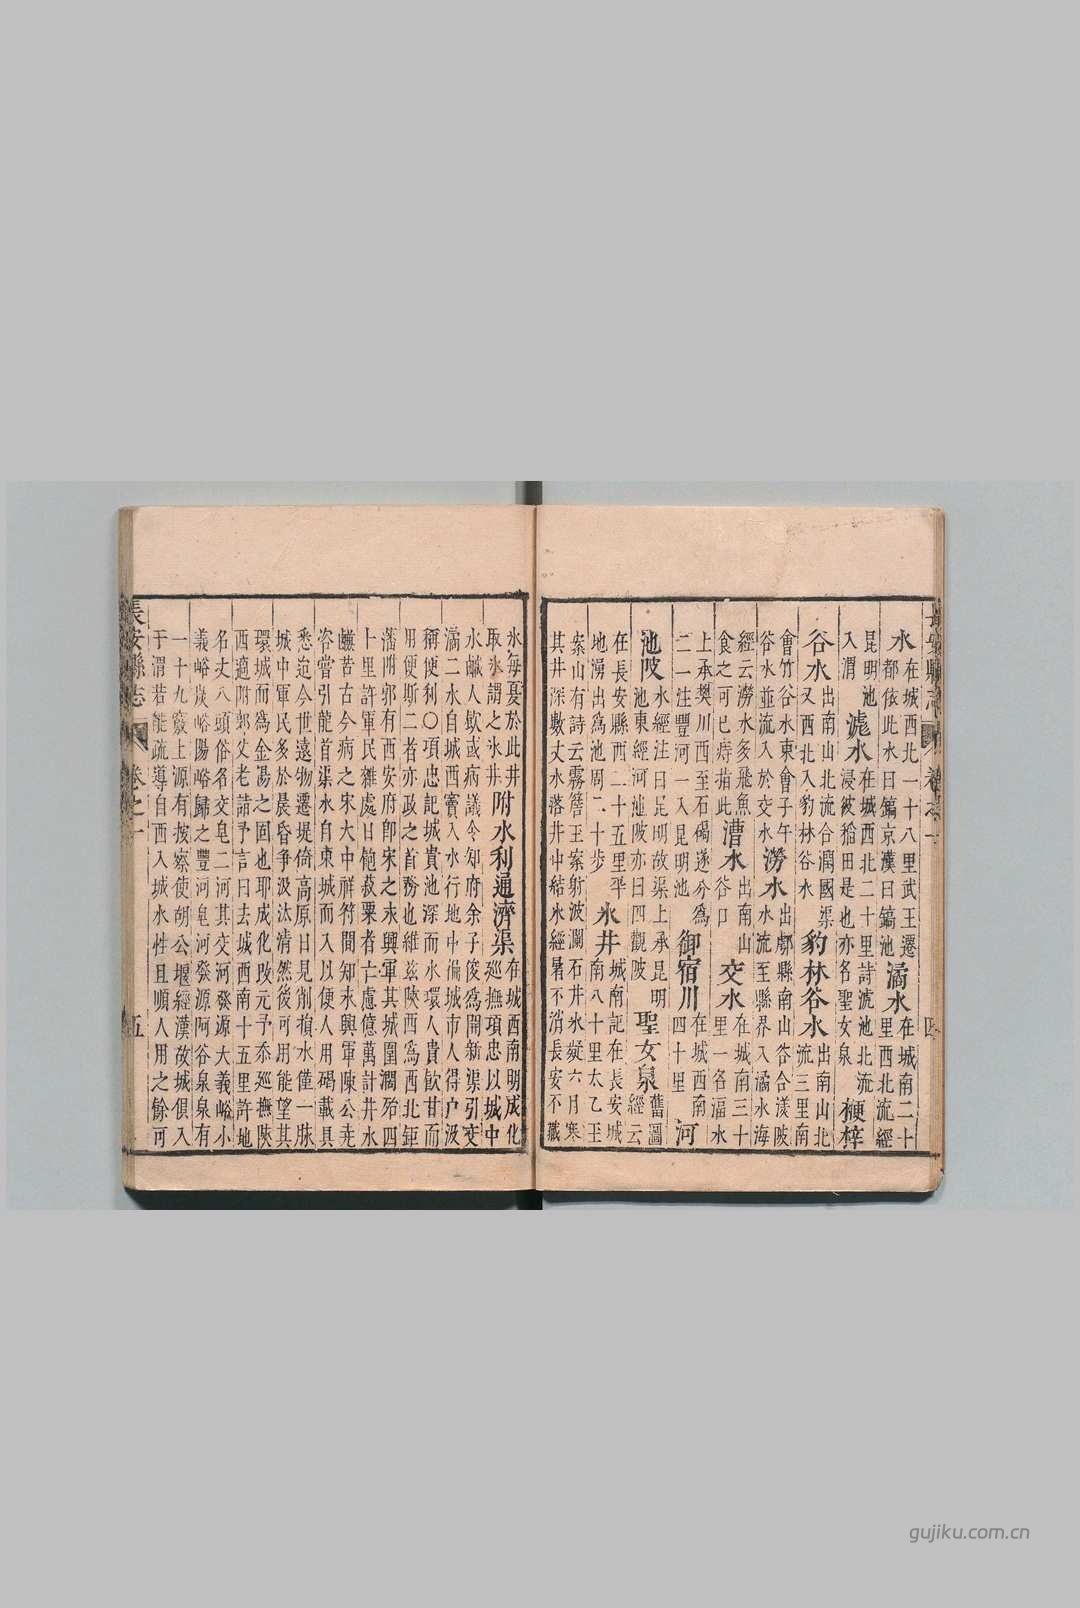 水在城西北一十八里武王遷
都依此水曰鎬京漢曰鎬池
滈水在城南二十
里西北流經
昆明池
入渭
滮水在城西北二十里詩滮池北流
浸彼稻田是也亦名聖女泉
梗梓
谷水出南山北流合澗國渠
又西北入豹林谷水
豹林谷水出南山北
流三里南
會竹谷水東會子午谷合漾陂
谷水並流入於交水
澇水出鄠縣南山
水流至縣界入潏水海
經云澇水多飛魚
食之可已痔指此
漕水出南山
谷口
交水在城南三十
里一名福水
上承樊川西至石碣遂分爲
二一注豐河一入昆明池
御宿川在城西南
四十里
河
池陂水經注曰昆明故渠上承昆明
池東經河池陂亦曰四觀陂
聖女泉舊圖
經云
在長安縣西二十五里平
地湧出爲池周二十步
氷井城南記在長安城
南八十里太乙玉
案山有詩云霧簷王案射波瀾石井氷凝六月寒
其井深數丈水落井中結氷經暑不消長安不藏
氷每夏於此井
取氷謂之氷井
附水利通濟渠在城西南明成化
巡撫項忠以城中
水鹹人飲或病議令知府余子俊爲開新渠引交
潏二水自城西竇入水行地中備城市人得户汲
稱便利〇項忠記城貴池深而水環人貴飲甘而
用便斯二者亦政之首務也維兹陝西爲西北鉅
藩附郭有西安府卽宋之永興軍其城圍濶殆四
十里許軍民雜處日飽菽粟者亡慮億萬計井水
鹹苦古今病之宋大中祥符間知永興軍陳公堯
咨嘗引龍首渠水自東城而入以便人用碣載具
悉迨今世遠物遷堤倚高原日見削損水僅一脉
城中軍民多於晨昏爭汲汰清然後可用能望其
環城而爲金湯之固也耶成化改元予忝廵撫陝
西適附郭父老請予言曰去城西南十五里許地
名丈八頭俗名交皂二河其交河發源大義峪小
義峪炭峪陽峪歸之豐河皂河發源阿谷泉泉有
一十九竅上源有按察使胡公堰經漢故城俱入
于渭若能疏導自西入城水性且順人用之餘可
長安縣志
卷之一
五